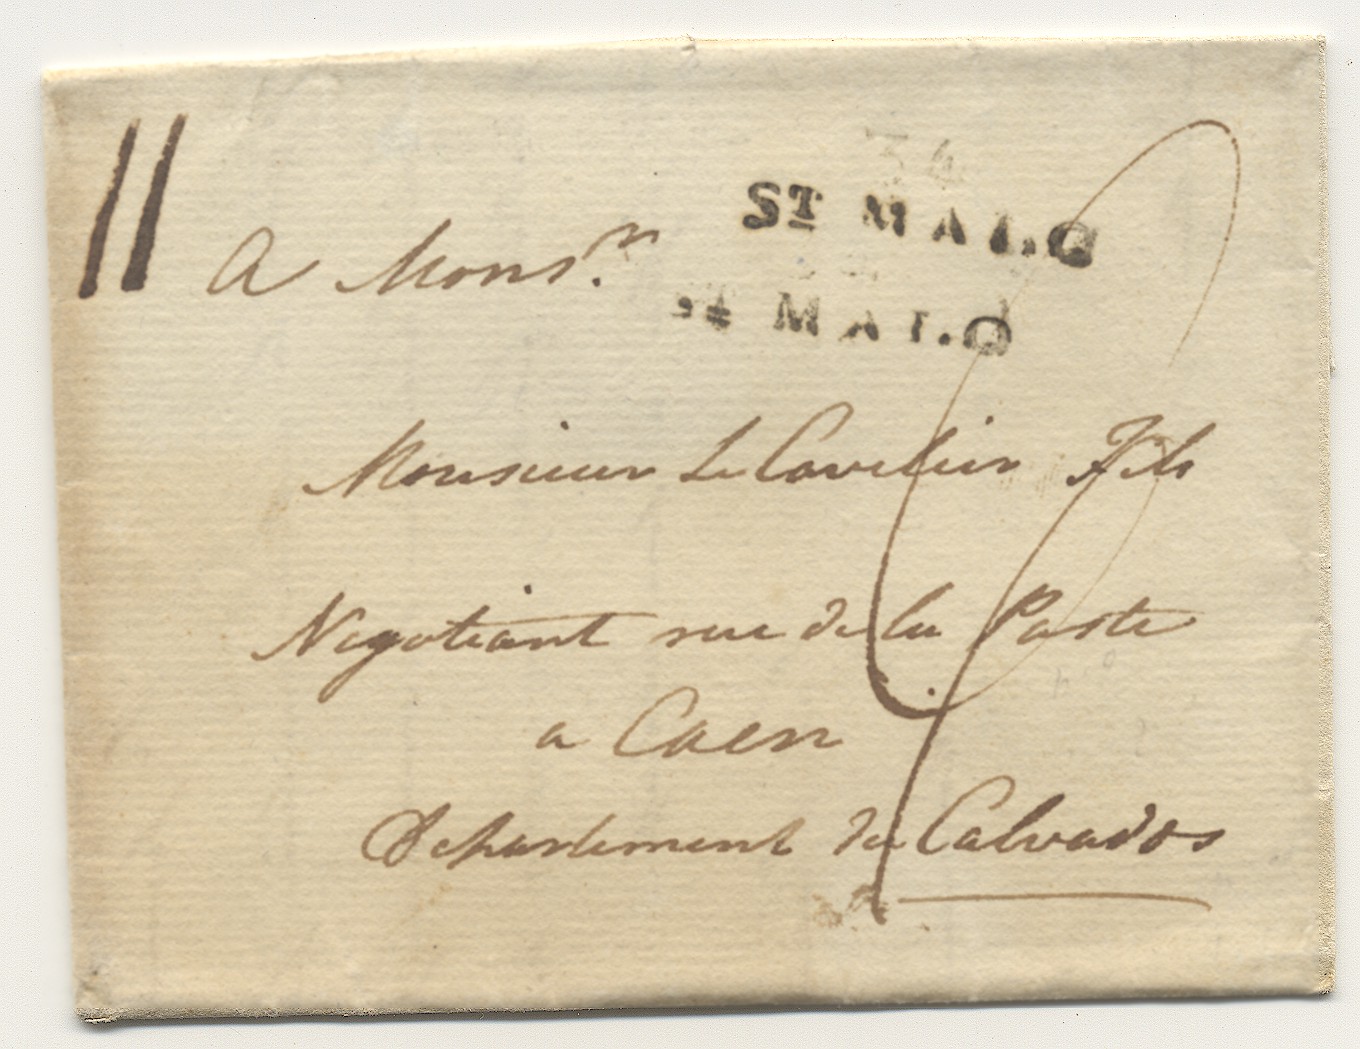 34
ST MALO
A Monsr.
St MALO
Monsieur Le Cavelier Fils
Negotiant rue de la Poste
a Caen
Departement du Calvados